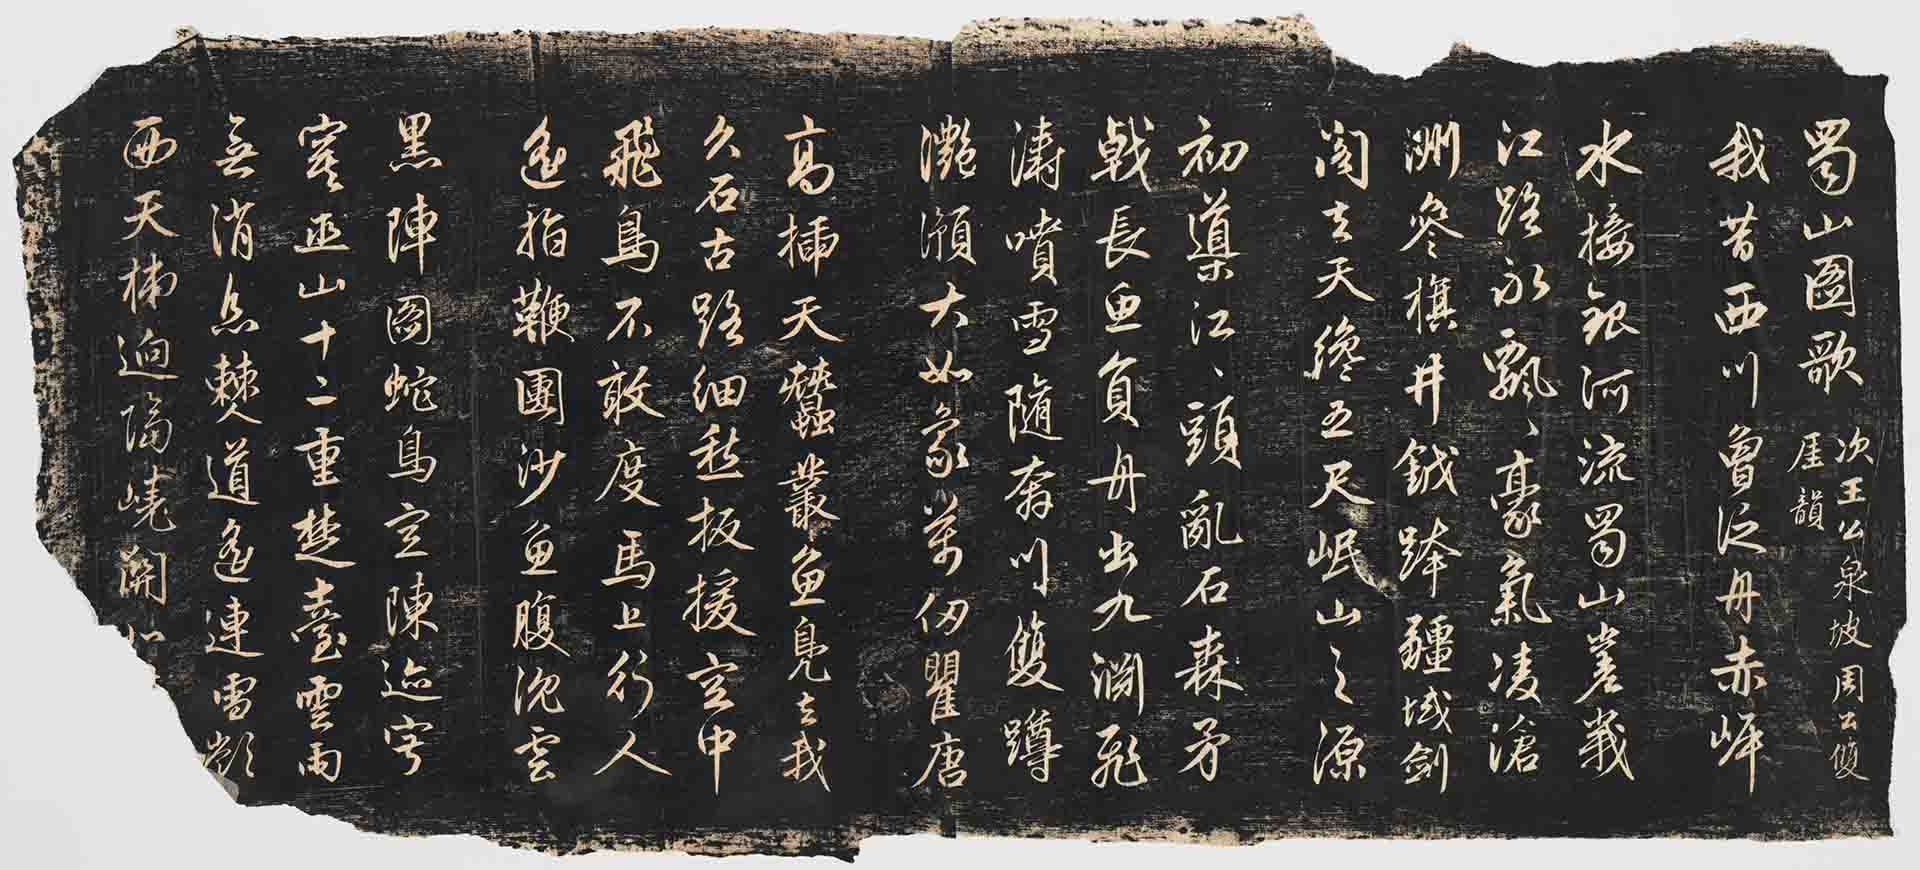 蜀山圖歌
次王公泉坡周公雙
厓韻
我昔西川曾泛舟赤岸
水接銀河流蜀山嵳峩
江路永飄〻豪氣凌滄
洲參旗井鉞跨疆域劍
閣去天纔五尺岷山之源
初導江〻頭亂石森矛
戟長魚負舟出九淵飛
濤噴雪隨奔川雙蹲
灔澦大如象萬仞瞿唐
高插天蠶叢魚鳧去我
久石古路細愁扳援空中
飛鳥不敢度馬上行人
遙指鞭團沙魚腹沈雲
黑陣圖蛇鳥空陳迹宋
巫山十二重楚臺雲雨
無消息僰道遙連雪嶺
西天梯迥隔嶢關